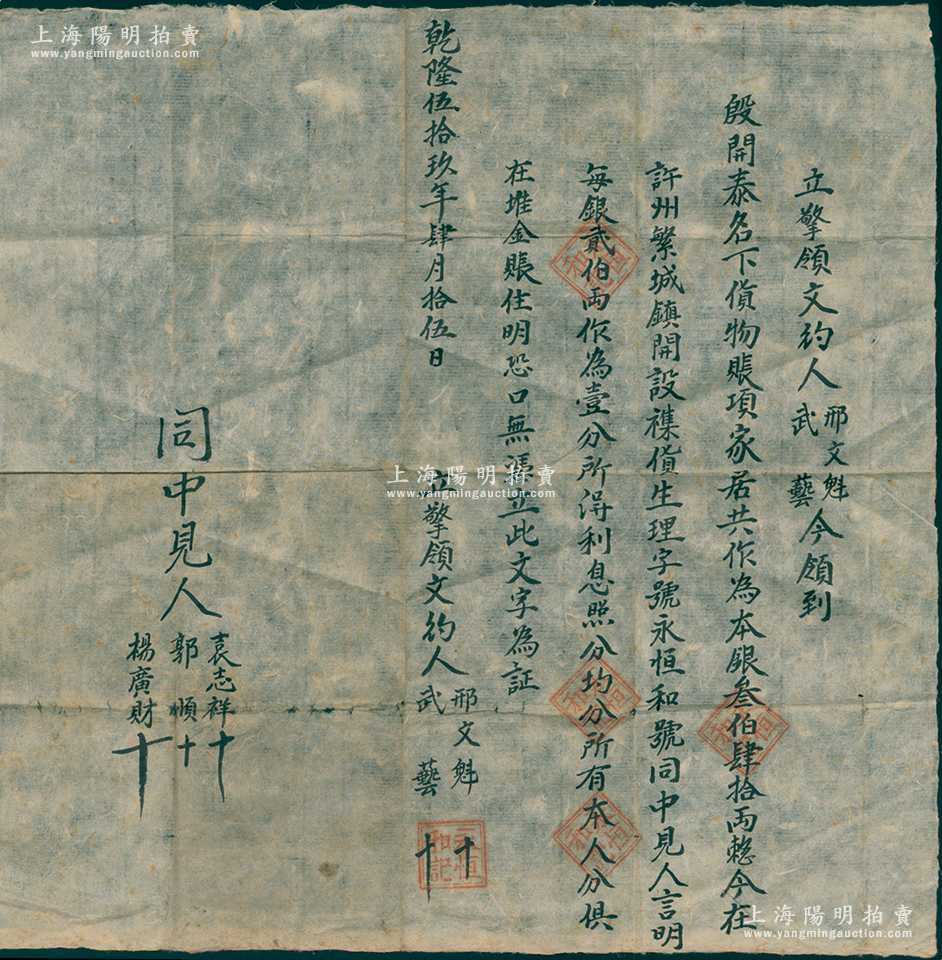 立擎領文約人邢文魁武藝今領到
殷開泰名下貨物賬項家居共作為本銀叁伯肆拾兩整今在
許州繁城鎮開設襍貨生理字號永恒和號同中見人言明
每銀貳伯兩作為壹分所得利息照分均分所有本人分俱
在堆金賬住明恐口無憑立此文字為証
立擎領文約人邢文魁武藝十十
永恒和記
乾隆伍拾玖年肆月拾伍日
同中見人袁志祥十郭順十楊廣財十
上海陽明拍賣
www.yangmingauction.com
上海陽明拍賣
www.yangmingauction.com
上海陽明拍賣
www.yangmingauction.com